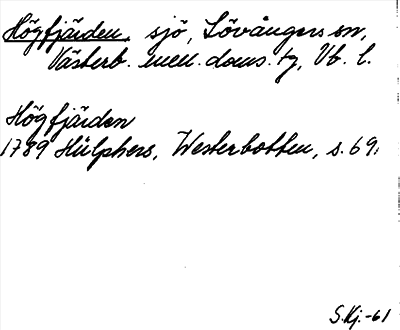 Högfjärden, sjö, Lövångers sn,
Västerb. mell. doms. tg, Vb. l.
Högfjärden
1789 Hülphers, Westerbotten, s. 69.
S.Kj.-61